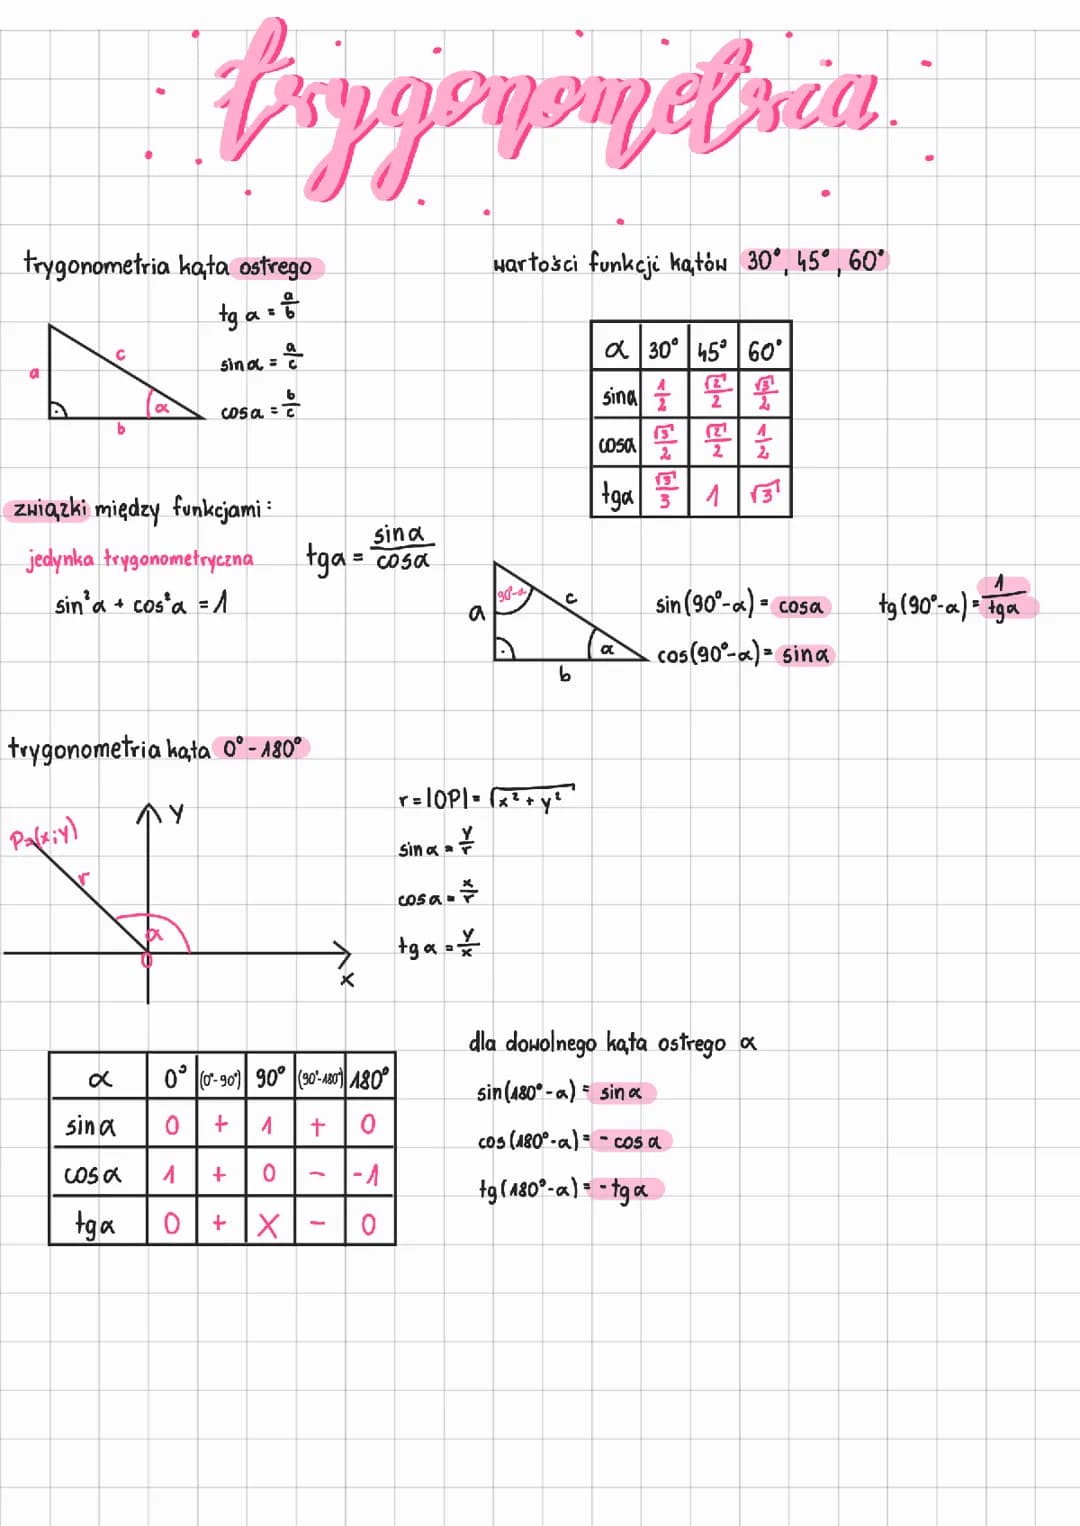 trygonometria
trygonometria kąta ostrego
tg α = a/b
sin α = a/c
cos α = b/c
a
c
α
b
wartości funkcji kątów 30°, 45°, 60°
α 30° 45° 60°
sinα 1/2 √2/2 √3/2
cosα √3/2 √2/2 1/2
tgα √3/3 1 √3
związki między funkcjami:
jedynka trygonometryczna
sin²α + cos²α = 1
tgα = sinα/cosα
90°-α
a
c
α
b
sin(90°-α) = cosα
cos(90°-α) = sinα
tg(90°-α) = 1/tgα
trygonometria kąta 0° - 180°
P=(x;y)
r
α
0
Y
X
r = |OP| = √x² + y²
sin α = y/r
cos α = x/r
tg α = y/x
α 0° (0°-90°) 90° (90°-180°) 180°
sin α 0 + 1 + 0
cos α 1 + 0 - -1
tg α 0 + X - 0
dla dowolnego kąta ostrego α
sin(180°-α) = sin α
cos(180°-α) = - cos α
tg(180°-α) = - tg α